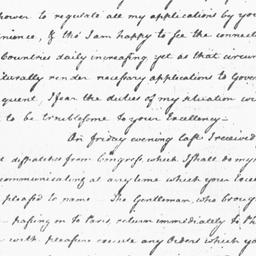 power to regulate all my applications by you
nience, & tho' I am happy to see the connecti
Countries daily increasing yet as that circum
turally render necessary applications to Gover
quent, I fear the duties of my situation wi
to be troublesome to your Excellency.—
On friday evening last I received
dispatches from Congress which I shall do my
communicating at any time which your Excel
pleased to name. The Gentleman, who broug
passing on to Paris, return immediatly to Ph
with pleasure execute any Orders which yo